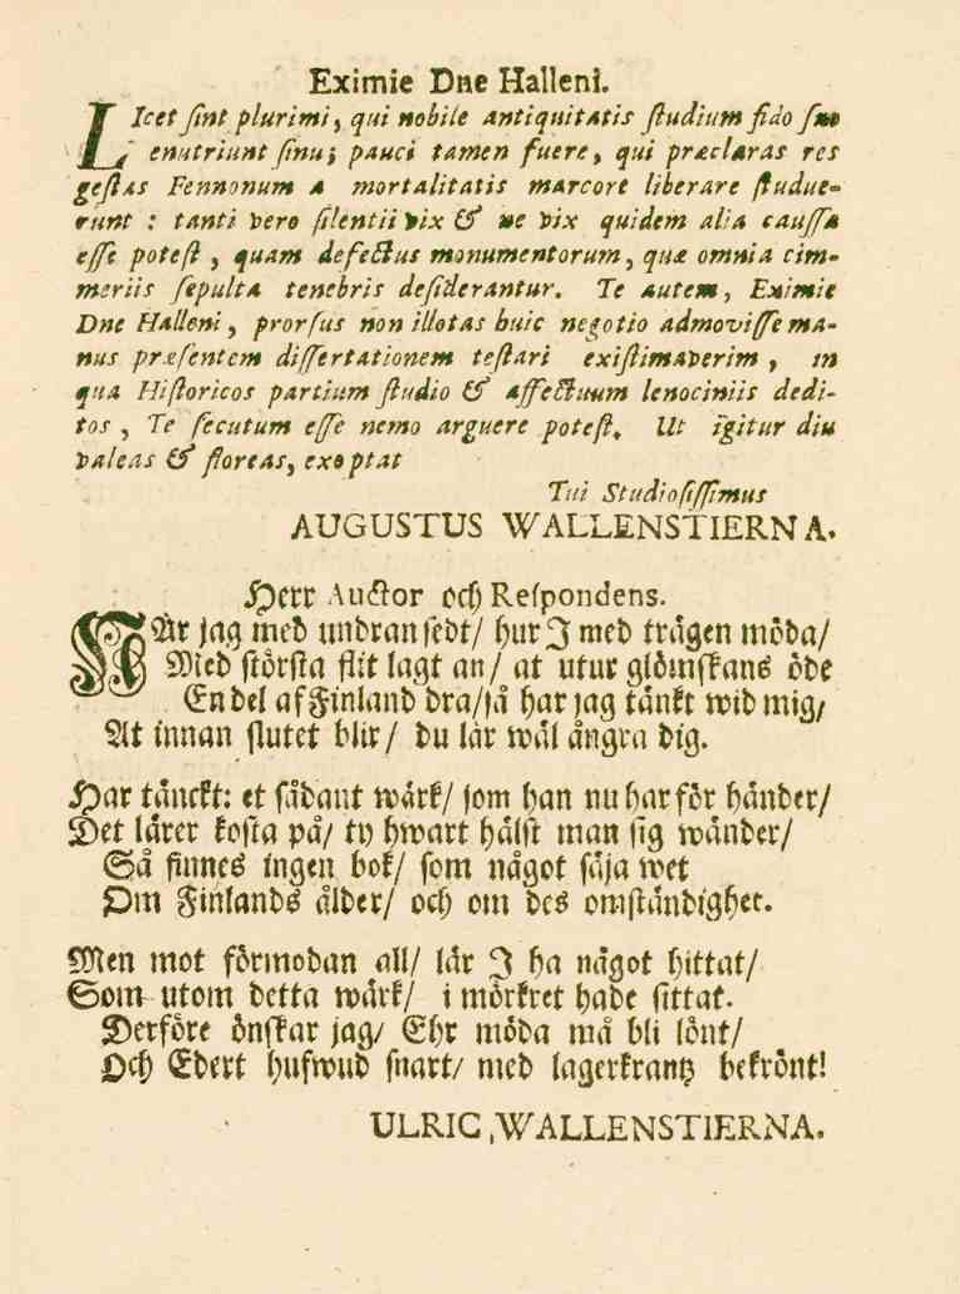 Eximie Dne Halleni.
LIcet ſint plurimi, qui nobile antiquitatis ſtudium fido ſuo
enutriunt ſinu; pauci tamen fuere, qui præclaras res
geſtas Fennonum a mortalitatis marcore liberare ſtudue-
runt : tanti vero ſilentii vix & ne vix quidem alia cauſſa
eſſe poteſt , quam defectus monumentorum, quæ omnia cim-
meriis ſepulta tenebris deſiderantur. Te autem, Eximie
Dne Halleni, prorſus non illotas huic negotio admoviſſe ma-
nus præſentem diſſertationem teſtari exiſtimaverim , in
qua Hiſtoricos partium ſtudio & affectuum lenociniis dedi-
tos , Te ſecutum eſſe nemo arguere poteſt. Ut igitur diu
valeas & floreas, exoptat
Tui Studioſiſſimus
AUGUSTUS WALLENSTIERNA.
Herr Auctor och Reſpondens.
NÅr jag med undran ſedt/ hur J med trägen möda/
Med ſtörſta flit lagt an/ at utur glömſkans öde
En del af Finland dra/ſå har jag tänkt wid mig/
At innan ſlutet blir/ du lär wäl ångra dig.
Har tänckt: et ſådant wärk/ ſom han nu har för händer/
Det lärer koſta på/ ty hwart hälſt man ſig wänder/
Så finnes ingen bok/ ſom något ſäja wet
Om Finlands ålder/ och om des omſtändighet.
Men mot förmodan all/ lär J ha något hittat/
Som utom detta wärk/ i mörkret hade ſittat.
Derföre önſkar jag/ Ehr möda må bli lönt/
Och Edert hufwud ſnart/ med lagerkrantz bekrönt!
ULRIC, WALLENSTIERNA.